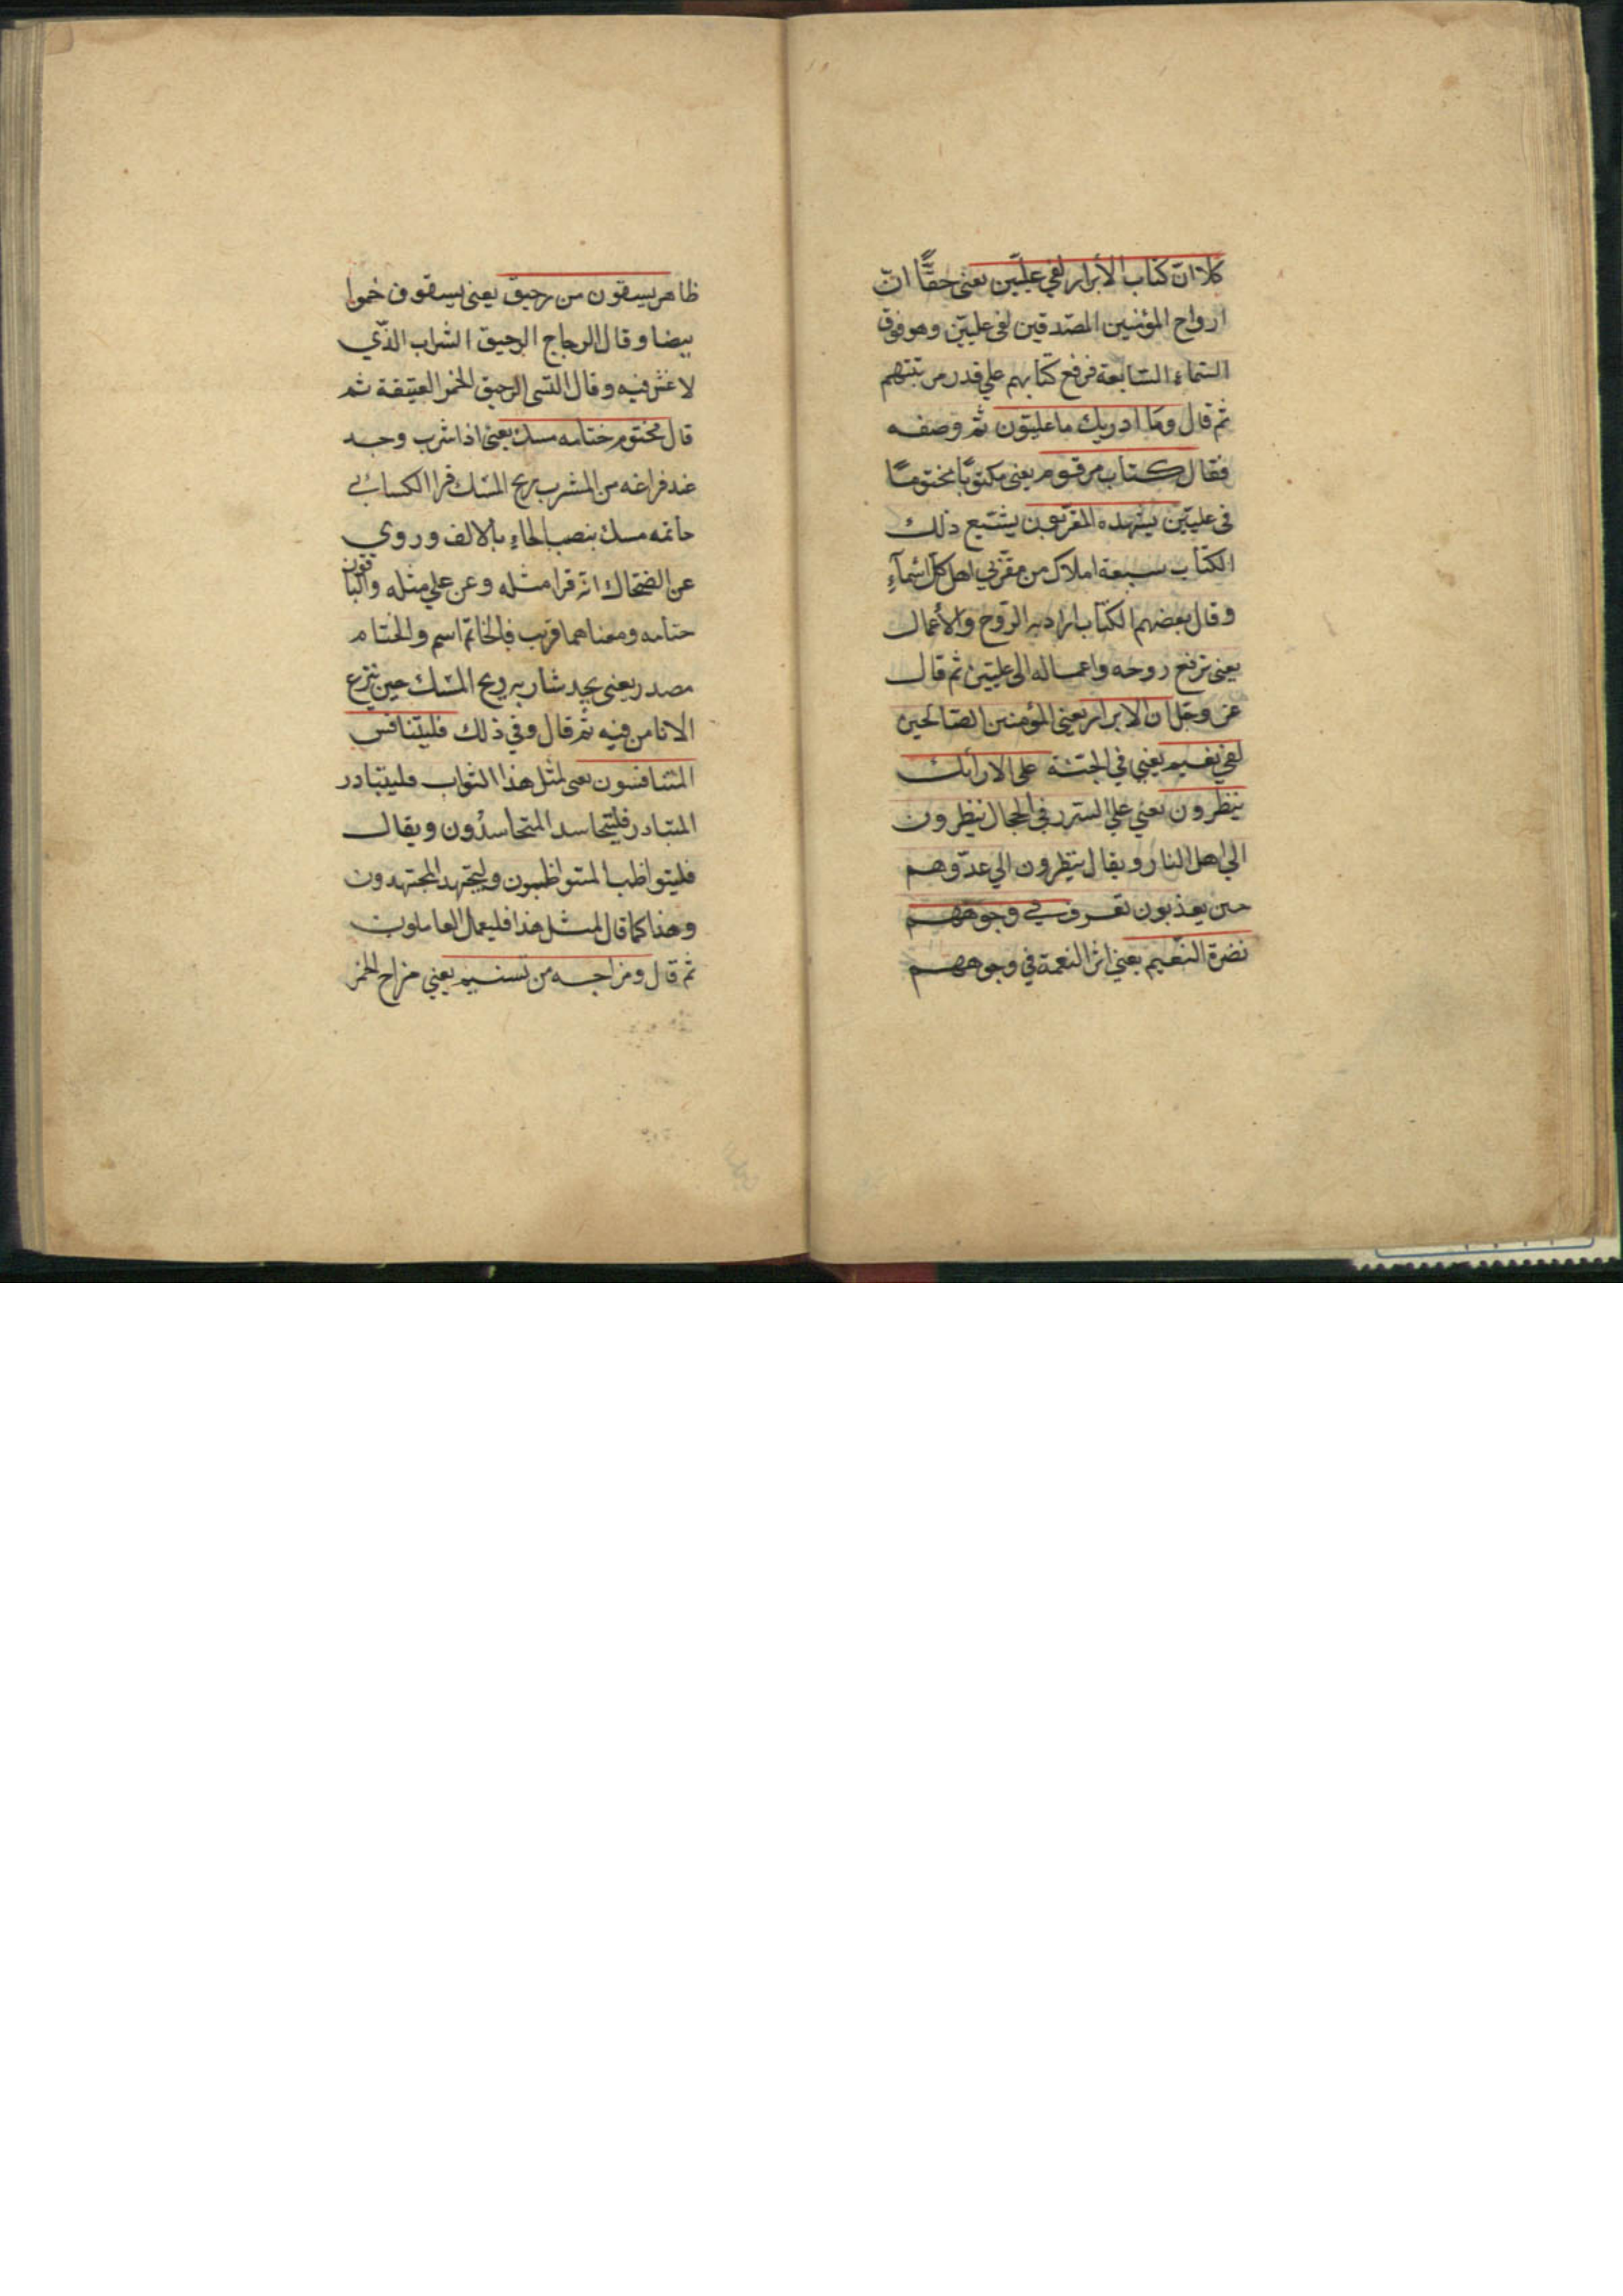 كلا انّ كتاب الأبرار لفي علّيّين يعني حقًّا انّ
ارواح المؤمنين المصّدقين لفي علييّن وهو فوق
السّماء السّابعة فرفع كتابهم علي قدر مرتبتهم
ثم قال وما ادريك ما عليّون ثم وصفه
فقال كتاب مرقوم يعني مكتوبًا مختومًا
في علييّن يشهده المقرّبون يشيّع ذلك
الكتاب سبعة املاك من مقرّبي اهل كل اسّمآءِ
وقال بعضهم الكتاب اراد به الرّوح والأعمال
يعني ترفع روحه واعماله الى علييّن ثم قال
عزّ وجلّ ان الابرار يعني المؤمنين الصّالحين
لفي نعيم يعني في الجنّة على الارائك
ينظرون يعني علي السّرر في الحجال ينظرون
الي اهل النار ويقال ينظرون الي عدّوهم
حين يعذبون تعرف في وجوههم
نضرة النّعيم يعني اثر النعمة في وجوههم
ظاهر يسقون من رحيق يعني يسقون خمرا
بيضا وقال الزجاج الرحيق الشراب الذّي
لا غش فيه وقال القتبى الرحيق الخمر العتيقة ثم
قال مختوم ختامه مسك يعني اذا شرب وجد
عند فراغه من المشرب ريح المسك قرا الكسائي
خاتمه مسك بنصب الخاءِ بالالف وروي
عن الضحّاك انّه قرا مثله وعن علي مثله والباقون
ختامه ومعناهما قريب فالخاتم اسم والختام
مصدر يعني يجد شاربه ريح المسك حين ينزع
الانا من فيه ثم قال وفي ذلك فليتنافس
المتنافسون يعني لمثل هذا الثواب فليتبادر
المتبادر فليتحاسد المتحاسدون ويقال
فليتواظب المتواظبون وليجتهد المجتهدون
وهذا كما قال لمثل هذا فليعمل العاملون
ثم قال ومزاجه من تسنيم يعني مزاج الخمر